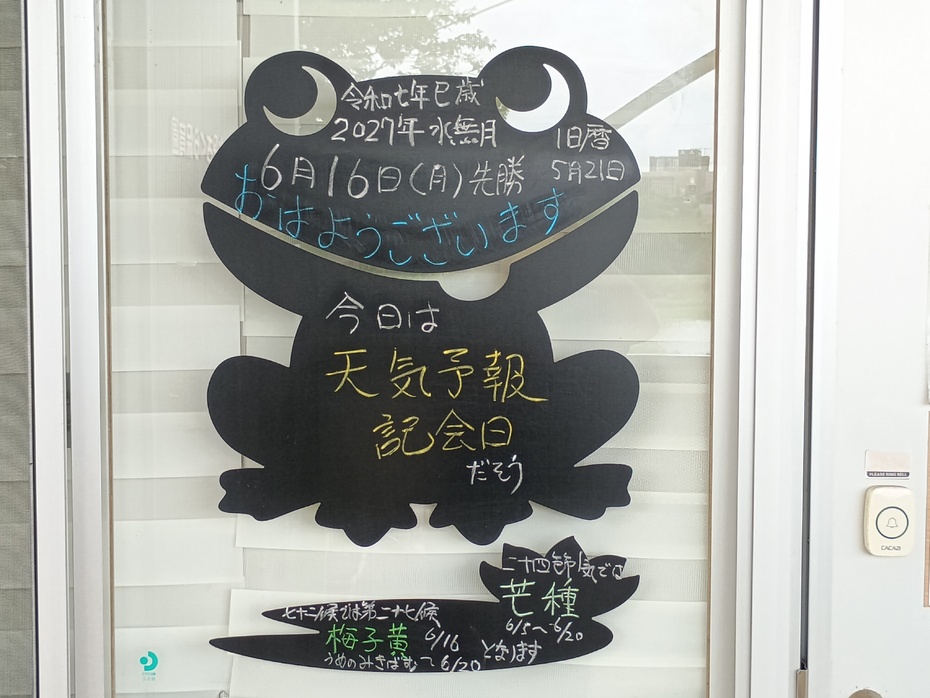 令和七年巳歳
2027年 水無月
6月16日(月)先勝
旧暦
5月21日
おはようございます
今日は
天気予報
記会日
だそう
二十四節気では
芒種
6/5〜6/20
となります
七十二候では第二十七候
梅子黄 6/16
うめのみきばむ 〜6/20
PLEASE RING BELL
CACAZI